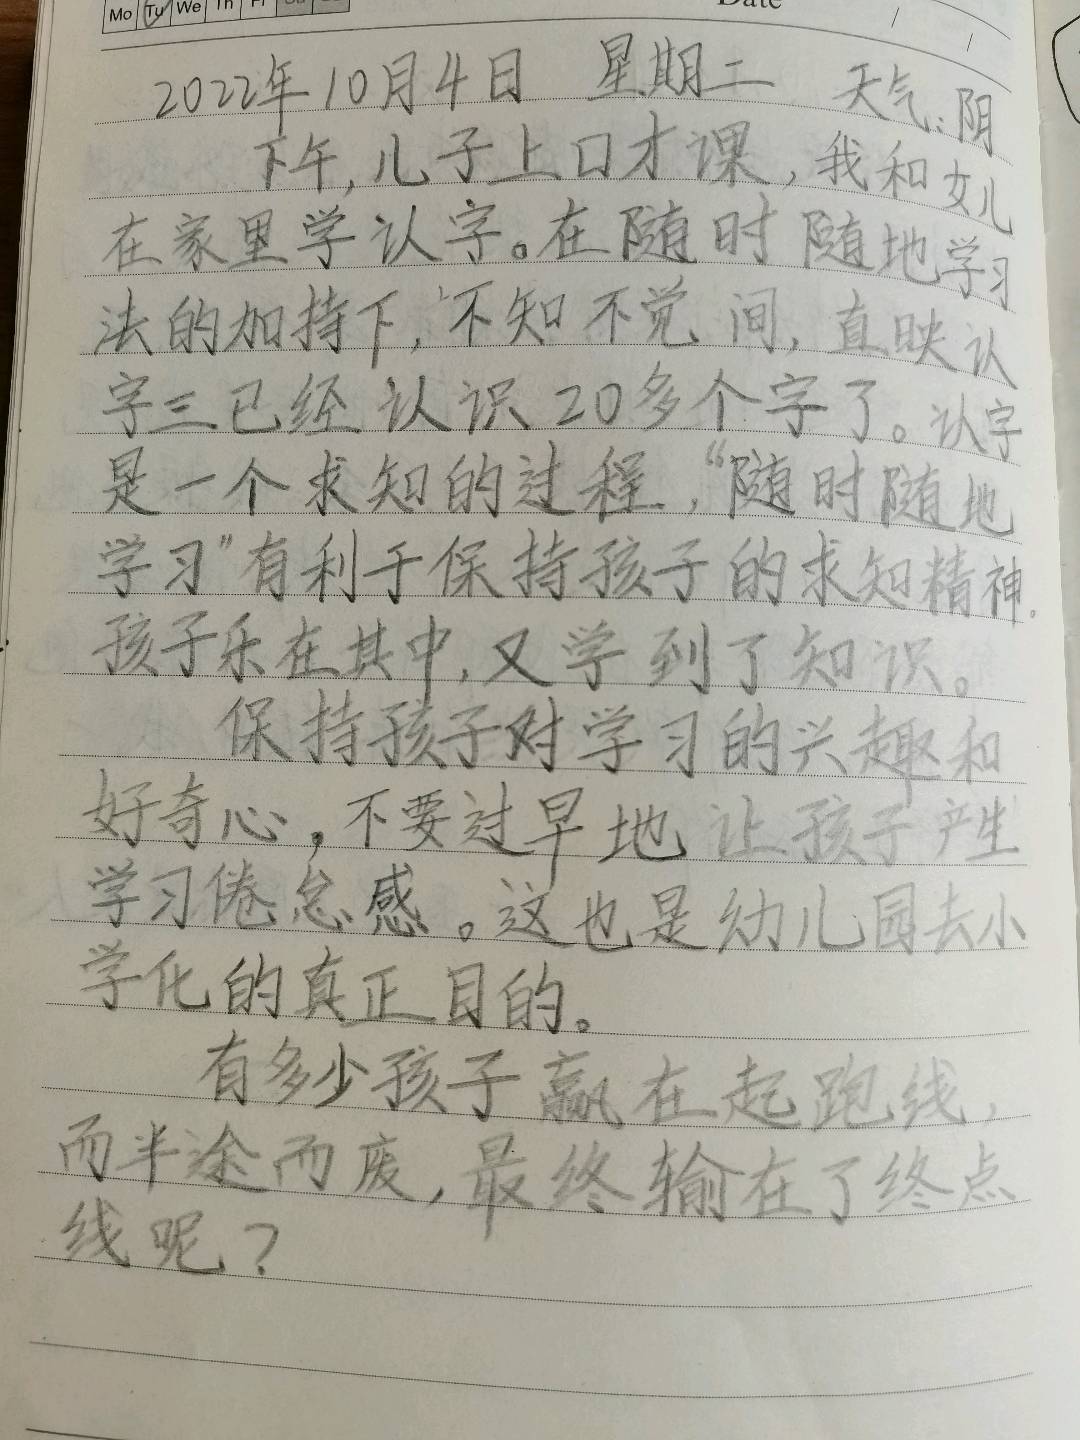 Mo Tu We Th Fr Sa Su
Date / /
2022年10月4日 星期二 天气:阴
下午,儿子上口才课,我和女儿
在家里学认字。在随时随地学习
法的加持下,不知不觉间,直映认
字三已经认识20多个字了。认字
是一个求知的过程,“随时随地
学习”有利于保持孩子的求知精神。
孩子乐在其中,又学到了知识。
保持孩子对学习的兴趣和
好奇心,不要过早地让孩子产生
学习倦怠感。这也是幼儿园去小
学化的真正目的。
有多少孩子赢在起跑线,
而半途而废,最终输在了终点
线呢?